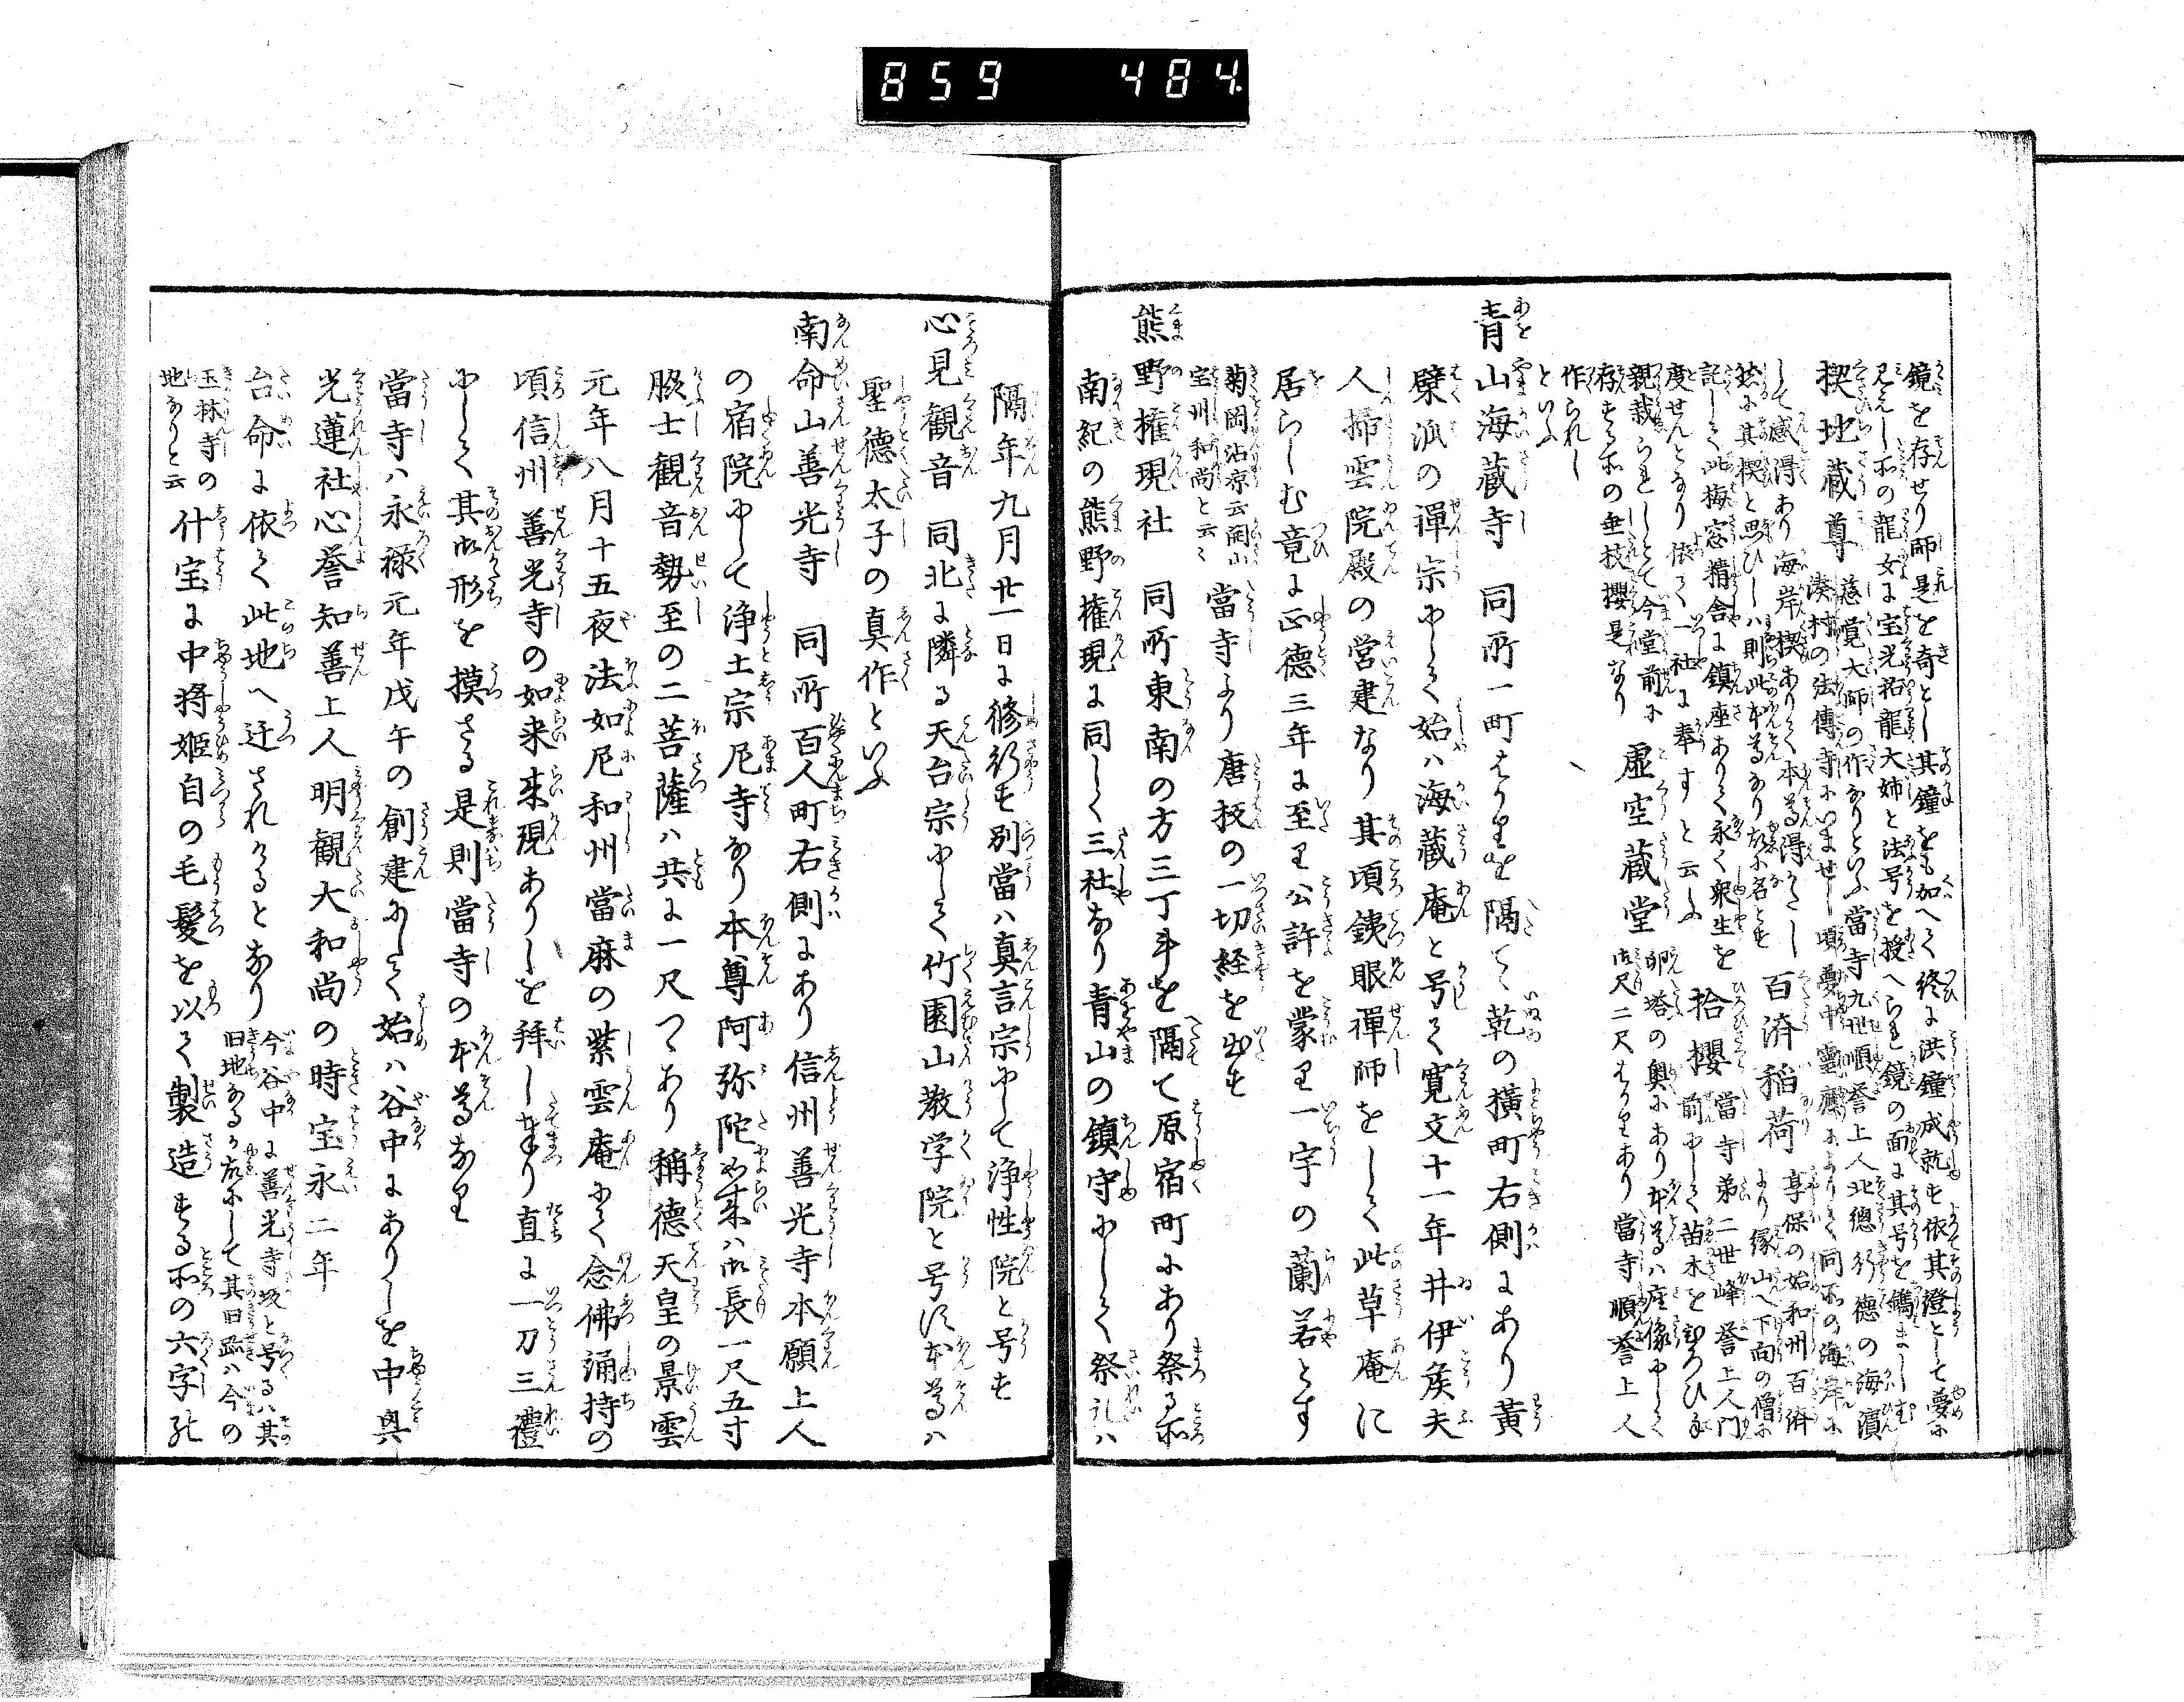 859 484
鏡を存せり師是を奇とし其鐘をも加へて終に洪鐘成就す依其證として夢に
見えし所の龍女に宝光祐龍大姉と法号を授へられ鏡の面に其号を鐫ましむ
楔地蔵尊 慈覚大師の作なりといふ當寺九世順誉上人北總行徳の海濱
湊村の法傳寺にいませし頃夢中靈應によりて同所の海岸に
して感得あり海岸楔ありて本尊得たまひし
故に其楔と唱ひしハ則此本尊なり故に名とす
百済稲荷 享保の始和州百済
より縁山へ下向の僧に
記して此梅窓精舎に鎮座ありて永く衆生を
度せんとなり依て一社に奉すと云ふ
拾櫻 當寺第二世峰誉上人門
前にして苗木をひろひ手
親栽られしとて今堂前に
存する所の垂枝櫻是なり
虚空蔵堂 卵塔の奥にあり本尊ハ座像にして
御尺二尺はかりあり當寺順誉上人
作られし
といふ
青山海蔵寺 同所一町はかりを隔て乾の横町右側にあり黄
檗派の禅宗にして始ハ海蔵庵と号く寛文十一年井伊矦夫
人掃雲院殿の営建なり其頃鉄眼禪師をして此草庵に
居らしむ竟に正徳三年に至り公許を蒙り一宇の蘭若とす
菊岡沾凉云開山
宝州和尚と云々
當寺より唐技の一切経を出す
熊野権現社 同所東南の方三丁斗を隔て原宿町にあり祭る所
南紀の熊野権現に同しく三社なり青山の鎮守にして祭礼ハ
隔年九月廿一日に修行す別當ハ真言宗にして浄性院と号す
心見観音 同北に隣る天台宗にして竹園山教学院と号す本尊ハ
聖徳太子の真作といふ
南命山善光寺 同所百人町右側にあり信州善光寺本願上人
の宿院にして浄土宗尼寺なり本尊阿弥陀如来ハ御長一尺五寸
脇士観音勢至の二菩薩ハ共に一尺つゝあり稱徳天皇の景雲
元年八月十五夜法如尼和州當麻の紫雲庵にて念佛誦持の
頃信州善光寺の如来来現ありしを拝し奉り直に一刀三禮
にして其御形を摸さる是則當寺の本尊なり
當寺ハ永禄元年戊午の創建にして始ハ谷中にありしを中興
光蓮社心誉知善上人明観大和尚の時宝永二年
台命に依て此地へ迁されけるとなり
今谷中に善光寺坂と号るハ其
旧地なるか故にして其旧跡ハ今の
玉林寺の
地なりと云
什宝に中将姫自の毛髪を以て製造する所の六字の